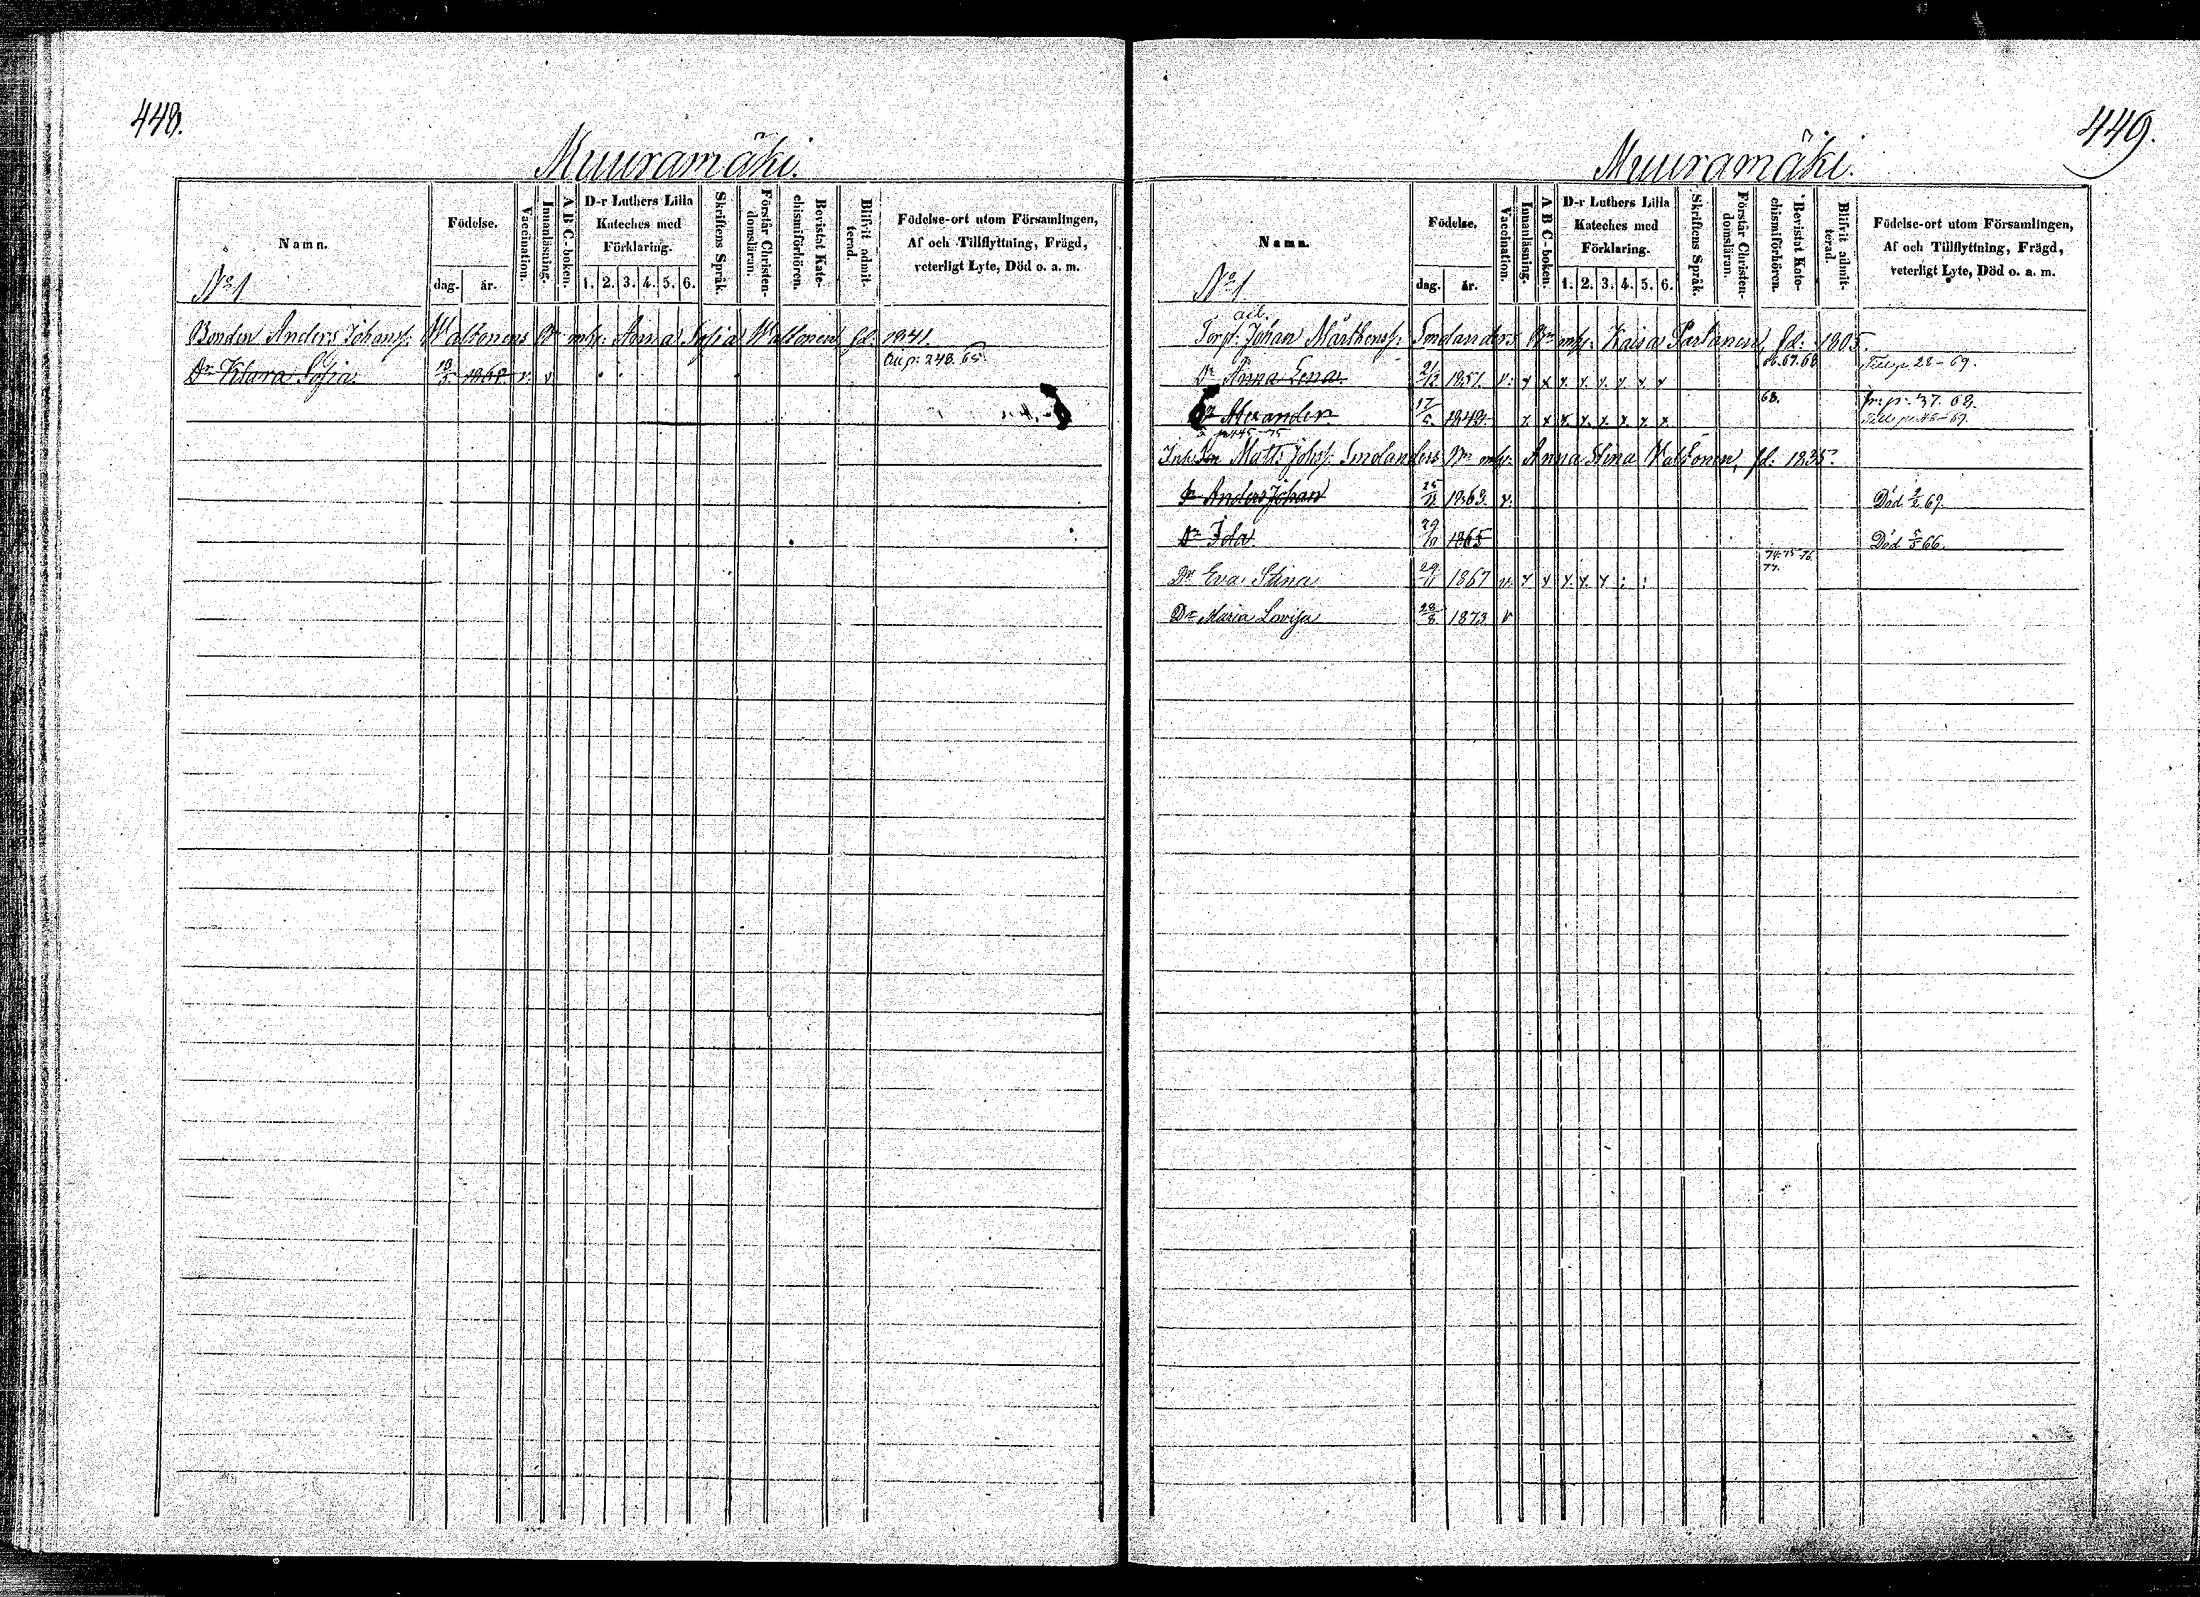 448.
Muuramäki.
Namn.
Födelse.
dag.
år.
Vaccination.
Innanläsning.
A B C-boken.
D-r Luthers Lilla
Kateches med
Förklaring.
1. 2. 3. 4. 5. 6.
Skriftens Språk.
Förstår Christen-
domsläran.
Bevistat Kate-
chismiförhören.
Blifvit admit-
terad.
Födelse-ort utom Församlingen,
Af och Tillflyttning, Frägd,
veterligt Lyte, Död o. a. m.
No 1
Bonden Anders Johansf: Waltonens Br mhp: Anna Sofia Waltonen fd: 1841.
Dr Klara Sofia. v. v p: 248. 65.
449.
Muuramäki.
Namn.
Födelse.
dag.
år.
Vaccination.
Innanläsning.
A B C-boken.
D-r Luthers Lilla
Kateches med
Förklaring.
1. 2. 3. 4. 5. 6.
Skriftens Språk.
Förstår Christen-
domsläran.
Bevistat Kate-
chismiförhören.
Blifvit admit-
terad.
Födelse-ort utom Församlingen,
Af och Tillflyttning, Frägd,
veterligt Lyte, Död o. a. m.
No 1
Torp: Johan Mårthensf: Smolanders Br mhp: Kaisa Partanen, fd: 1805.
Dr Anna Lena. 21/12 1851. v. x x x. x. x. x x x 67.68 Till p. 28-69.
Alexander 17/5 1849. x x x. x. x. x. x x 68. fr: p: 37. 68.
p 445-75
Matts Johsf: Smolanders Br mhp: Anna Stina Waltonen, fd: 1835.
Anders Johan 1863. v. Död 2/2 69.
Dr Ida. 29/10 1865 Död 5/5 66.
Dr Eva Stina 29/11 1867 v. x x x. x. x : : 74. 75 76.
77.
Dr Maria Lovisa 28/8 1873 v